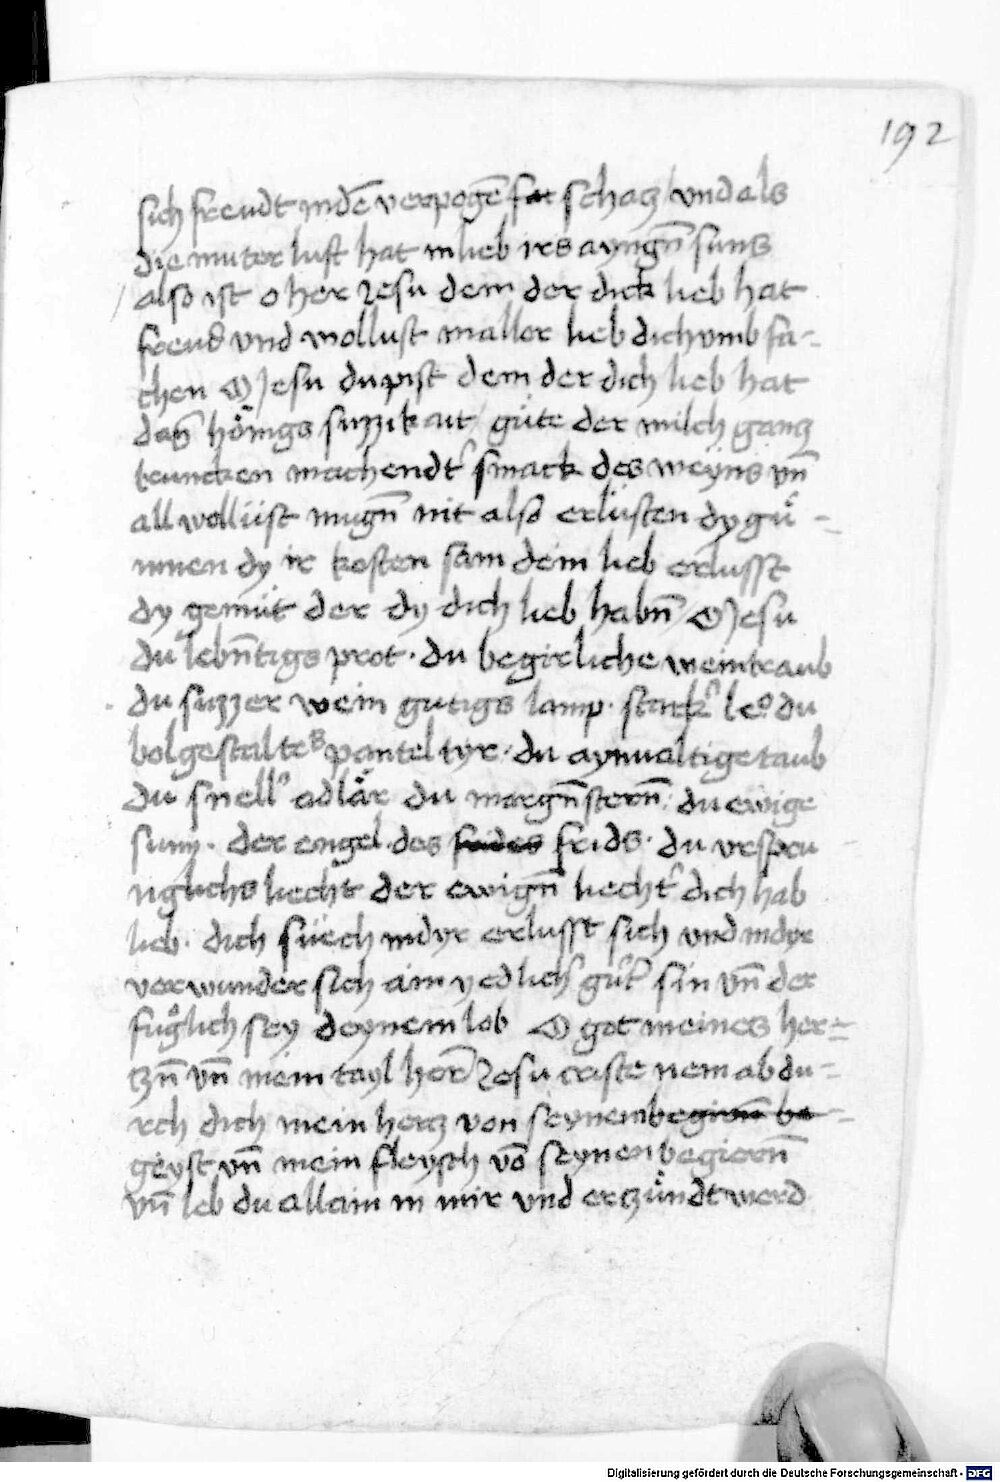 192
sich freudt in dē verpogē schacz / vnd als
die muter lust hat in lieb irs aynign̄ suns
also ist o her Jesu dem der dich lieb hat
freud vnd wollust in aller lieb dich vmb fa-
chen O Jesu du pist dem der dich lieb hat
das hönigs suzzikait / güte der milch gancz
truncken machendt' smack des weÿns vn̄
all wollüst mugn̄ nit also erlüsten dy gů-
men dy ir kosten sam dein lieb erlusst
dy gemüt der dy dich lieb habn̄ / O Jesu
du lebn̄tigs prot · du begirliche weintraub
du suzzer wein gutigs lamp · stark' leo du
volgestaltes pantel tyr · du aynualtige taub
du snell' adlär du margn̄stern̄ : du ewige
sunn · der engel des frids · du vrspru
nglichs liecht der ewign̄ liecht' dich hab
lieb · dich süech in dyr erlusst sich vnd in dyr
verwunder sich ain yedlich' gut' sin vn̄ der
fuglich sey deynem lob O got meines her-
czn̄ vn̄ mein tayl hor̄ Jesu criste nem ab du-
rch dich mein hercz von seynem
geyst vn̄ mein fleysch vō seynen begiern̄
vn̄ leb du allain in mir vnd erczündt werd
Digitalisierung gefördert durch die Deutsche Forschungsgemeinschaft - DFG